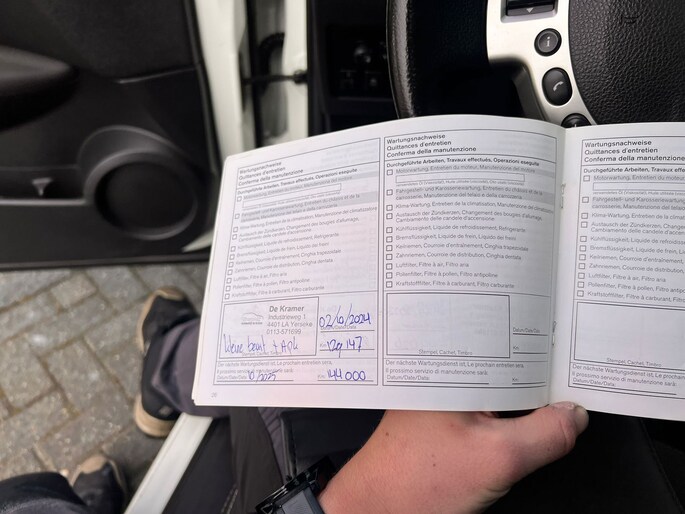 Wartungsnachweise
Quittances d'entretien
Conferma della manutenzione
Durchgeführte Arbeiten, Travaux effectués, Operazioni eseguite
Klima-Wartung, Entretien de la climatisation, Manutenzione del climatizzatore
Austausch der Zündkerzen, Changement des bougies d'allumage,
Cambiamento delle candele d'accensione
Kühlflüssigkeit, Liquide de refroidissement, Refrigerante
Bremsflüssigkeit, Liquide de frein, Liquido dei freni
Keilriemen, Courroie d'entraînement, Cinghia trapezoidale
Zahnriemen, Courroie de distribution, Cinghia dentata
Luftfilter, Filtre à air, Filtro aria
Pollenfilter, Filtre à pollens, Filtro antipolline
Kraftstofffilter, Filtre à carburant, Filtro carburante
De Kramer
Industrieweg 1
4401 LA Yerseke
0113-571696
02/10/2024
Datum/Date/Data
+ Apk
147
Km
Der nächste Wartungsdienst ist, Le prochain entretien sera,
Il prossimo servizio di manutenzione sarà:
Datum/Date/Data
Km
144 000
Wartungsnachweise
Quittances d'entretien
Conferma della manutenzione
Durchgeführte Arbeiten, Travaux effectués, Operazioni eseguite
Motorwartung, Entretien du moteur, Manutenzione del motore
Fahrgestell- und Karosseriewartung, Entretien du châssis et de la
carrosserie, Manutenzione del telaio e della carrozzeria
Klima-Wartung, Entretien de la climatisation, Manutenzione del climatizzatore
Austausch der Zündkerzen, Changement des bougies d'allumage,
Cambiamento delle candele d'accensione
Kühlflüssigkeit, Liquide de refroidissement, Refrigerante
Bremsflüssigkeit, Liquide de frein, Liquido dei freni
Keilriemen, Courroie d'entraînement, Cinghia trapezoidale
Zahnriemen, Courroie de distribution, Cinghia dentata
Luftfilter, Filtre à air, Filtro aria
Pollenfilter, Filtre à pollens, Filtro antipolline
Kraftstofffilter, Filtre à carburant, Filtro carburante
Stempel, Cachet, Timbro
Datum/Date/Data
Km
Der nächste Wartungsdienst ist, Le prochain entretien sera,
Il prossimo servizio di manutenzione sarà:
Datum/Date/Data
Km
Wartungsnachweise
Quittances d'entretien
Conferma della manutenzione
Durchgeführte Arbeiten, Travaux effectués, Op
Motorwartung, Entretien du moteur,
Fahrgestell- und Karosseriewartung,
carrosserie, Manutenzione del telaio e
Klima-Wartung, Entretien de la climatisation,
Austausch der Zündkerzen, Changement
Cambiamento delle candele d'accensione
Kühlflüssigkeit, Liquide de refroidissement,
Bremsflüssigkeit, Liquide de frein,
Keilriemen, Courroie d'entraînement,
Zahnriemen, Courroie de distribution,
Luftfilter, Filtre à air, Filtro aria
Pollenfilter, Filtre à pollens, Filtro
Kraftstofffilter, Filtre à carburant,
Stempel, Cachet, Timbro
Der nächste Wartungsdienst ist, Le prochain
Il prossimo servizio di manutenzione sarà:
Datum/Date/Data